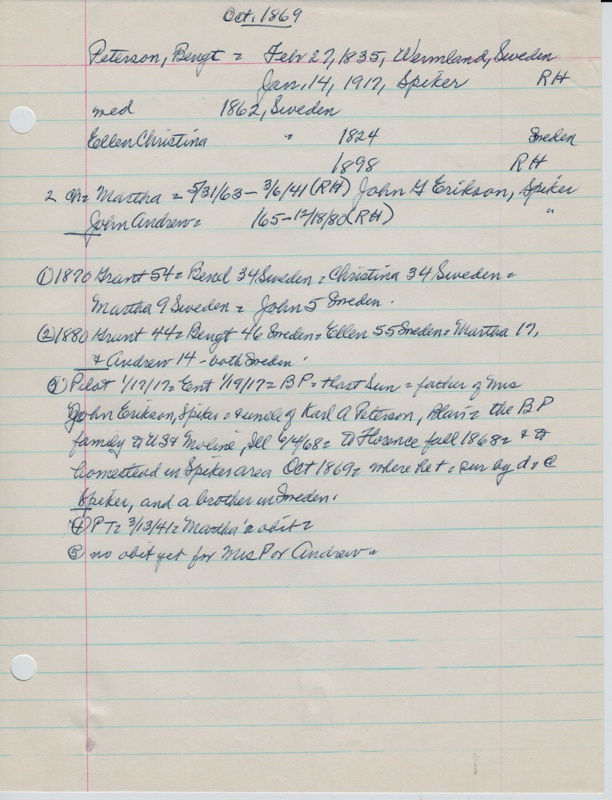 Oct. 1869
Peterson, Bengt = Febr 27, 1835, Wermland, Sweden
Jan. 14, 1917, Spiker RH
med 1862, Sweden
Ellen Christina " 1824 Sweden
1898 RH
2 ch = Martha = 5/31/63 - 3/6/41 (RH) John G Erikson, Spiker
John Andrew = /65 - 12/18/80 (RH) "
① 1870 Grant 54 = Bend 34 Sweden = Christina 34 Sweden =
Martha 9 Sweden = John 5 Sweden.
② 1880 Grant 44 = Bengt 46 Sweden = Ellen 55 Sweden = Martha 17,
& Andrew 14 - both Sweden.
③ Pilot 1/17/17 = Ent 1/19/17 = BP = + last Sun = father of Mrs
John Erikson, Spiker = uncle of Karl A Peterson, Blair = the BP
family to US & Moline, Ill 6/4/68 = to Florence fall 1868 = & to
homestead in Spiker area Oct 1869 = where he + = sur by d = @
Spiker, and a brother in Sweden.
④ PT = 3/13/41 = Martha's obit =
⑤ no obit yet for Mrs P or Andrew =